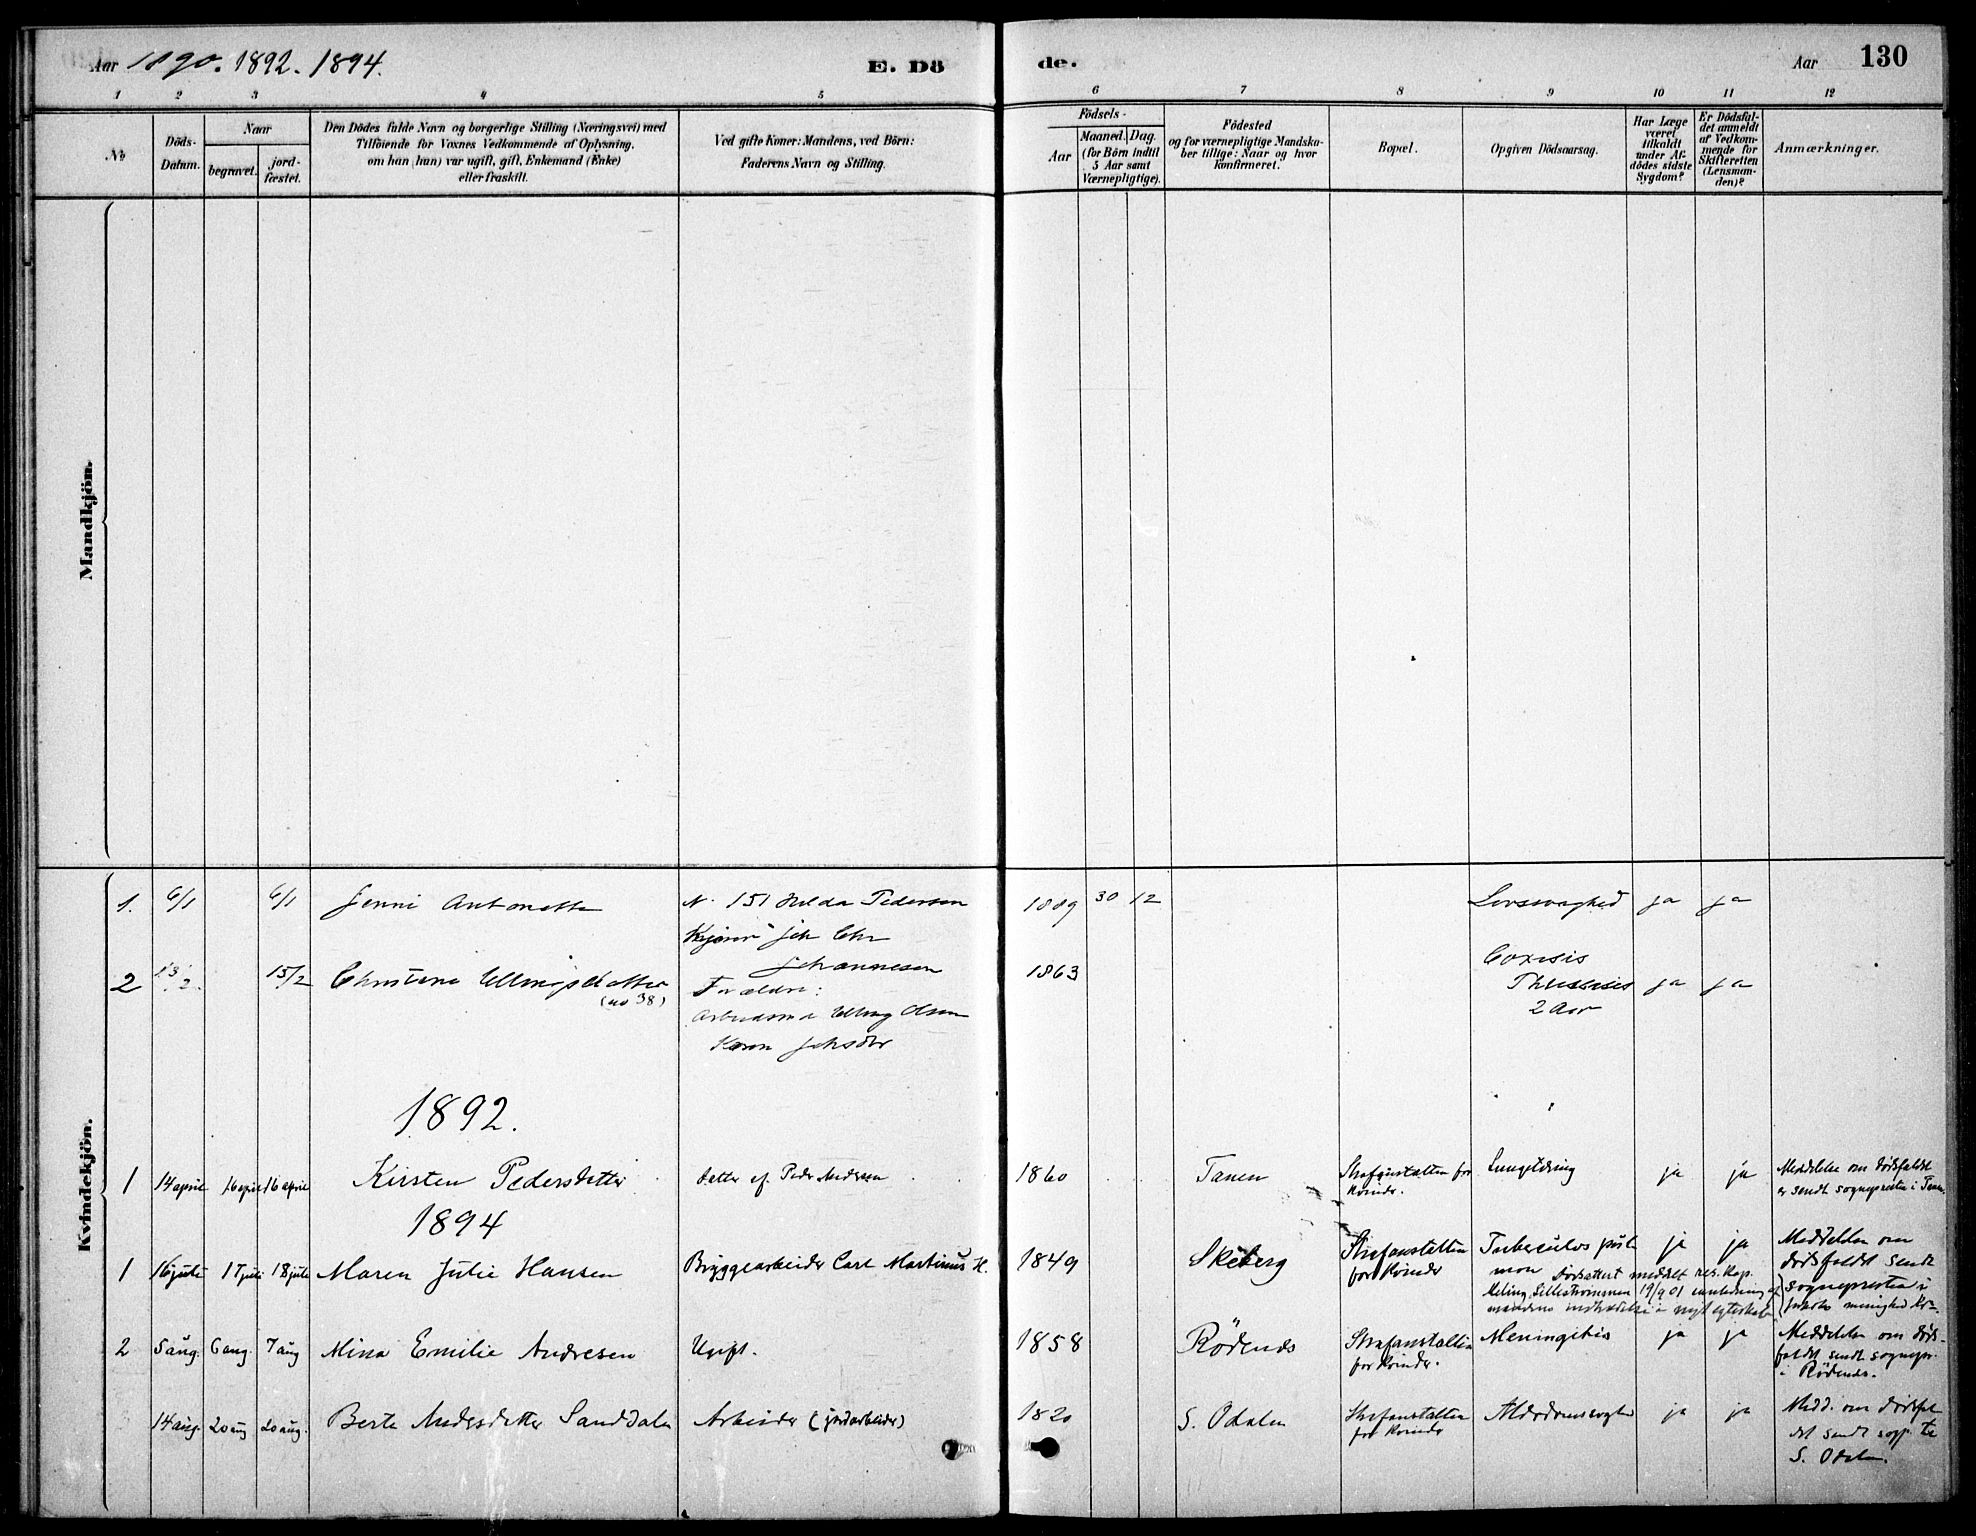 Aar 1890. 1892. 1894. E. Dö
de. Aar 130
1 2 3 4 5 6 7 8 9 10 11 12
No
Döds-
Datum.
Naar
begravet.
jord-
fæstet.
Den Dödes fulde Navn og borgerlige Stilling (Næringsvei) med
Tilföiende for Voxnes Vedkommende af Oplysning,
om han (hun) var ugift, gift, Enkemand (Enke)
eller fraskilt.
Ved gifte Koner: Mandens, ved Börn:
Faderens Navn og Stilling.
Födsels-
Aar
Maaned. Dag.
(for Börn indtil
5 Aar samt
Værnepligtige).
Födested
og for værnepligtige Mandska-
ber tillige: Naar og hvor
konfirmeret.
Bopæl.
Opgiven Dödsaarsag.
Har Læge
været
tilkaldt
under Af-
dödes sidste
Sygdom?
Er Dödsfal-
det anmeldt
af Vedkom-
mende for
Skifteretten
(Lensman-
den)?
Anmærkninger.
Mandkjön.
Kvindekjön.
1. 6/1 6/1 Jenni Antonette N. 151 Hulda Pedersen 1889 30 12 Livssvaghed ja ja
Joh Chr
Johannesen
2 13/2 15/2 Christine Ellingsdatter 1863 Coxisis
(no 38) Forældre: ja ja
2 Aar
Elling Olsen
Karen
1892.
1 14 april 16 april 16 april Kirsten Pedersdatter datter af Peder Andersen 1860 Tanen Strafanstalten for Lungetæring ja ja Meddelse om dødsfaldet
Kvinder. er sendt sognepresten i Tanen
1894
1 16 juli 17 juli 18 juli Maren Julie Hansen Bryggearbeider Carl Martinius H. 1849 Skeberg Strafanstalten Tuberculos ja ja Meddelelse om
for Kvinder dødsfaldet sendt
Dødsattest meddelt res. kap.
19/9 01 i anledning af sognepresten i
mandens indtrædelse i nyt egteskab menighed
2 5 aug. 6 aug. 7 aug Mina Emilie Andresen Ugift. 1858 Rödenes Strafanstalten Meningitis ja ja Meddelelse om døds-
for Kvinder. faldet sendt sognepr.
i Rödenes.
14 aug. 20 aug 20 aug. Berte Andersdatter Sanddalen Arbeider (jordarbeider) 1820 S. Odalen Strafanstalten Alderdomssvaghed ja ja Medd. om dödsfal
for Kvinder det sendt sogp. til
S. Odalen.